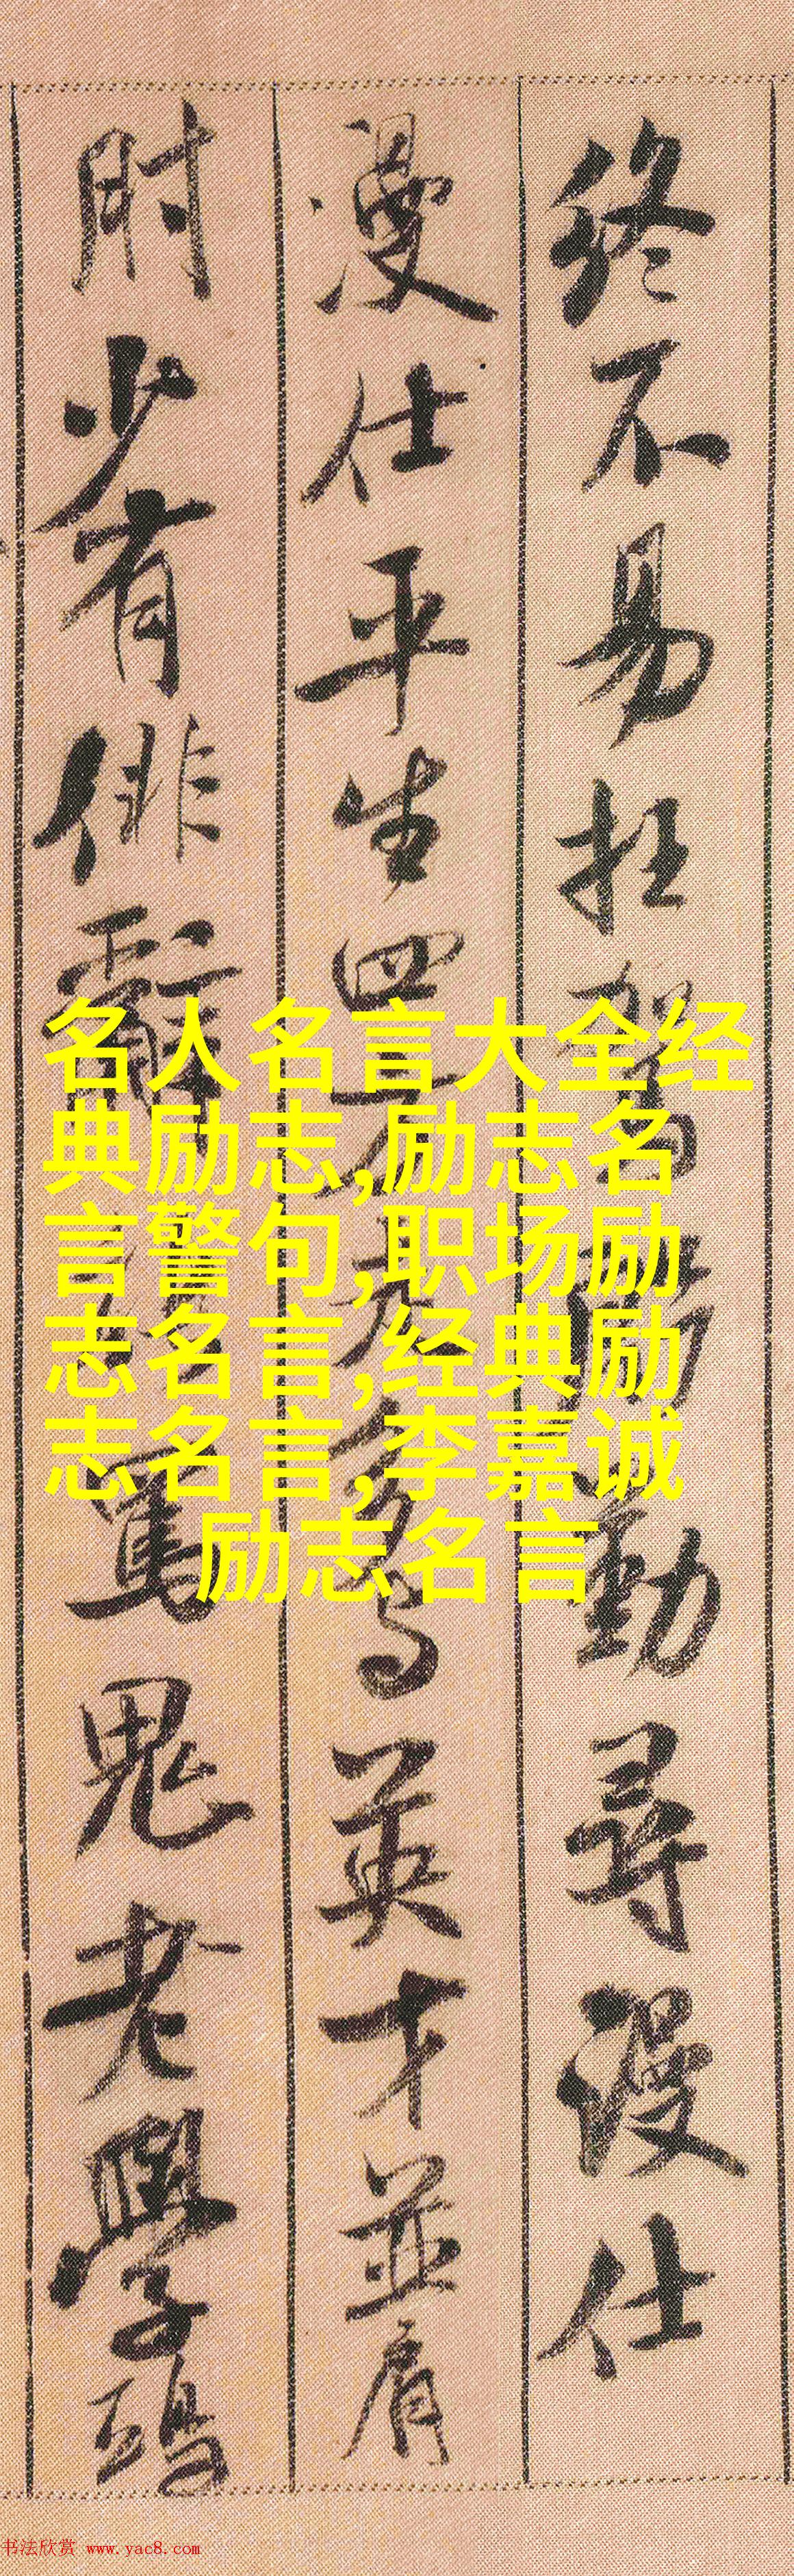 終不易枉駕勤尋漫仕
漫仕平生四方走多與英才並肩
肘少有俳辭能罵鬼老學鴟
名人名言大全经
典励志,励志名
言警句,职场励
志名言,经典励
志名言,李嘉诚
励志名言
书法欣赏 www.yac8.com